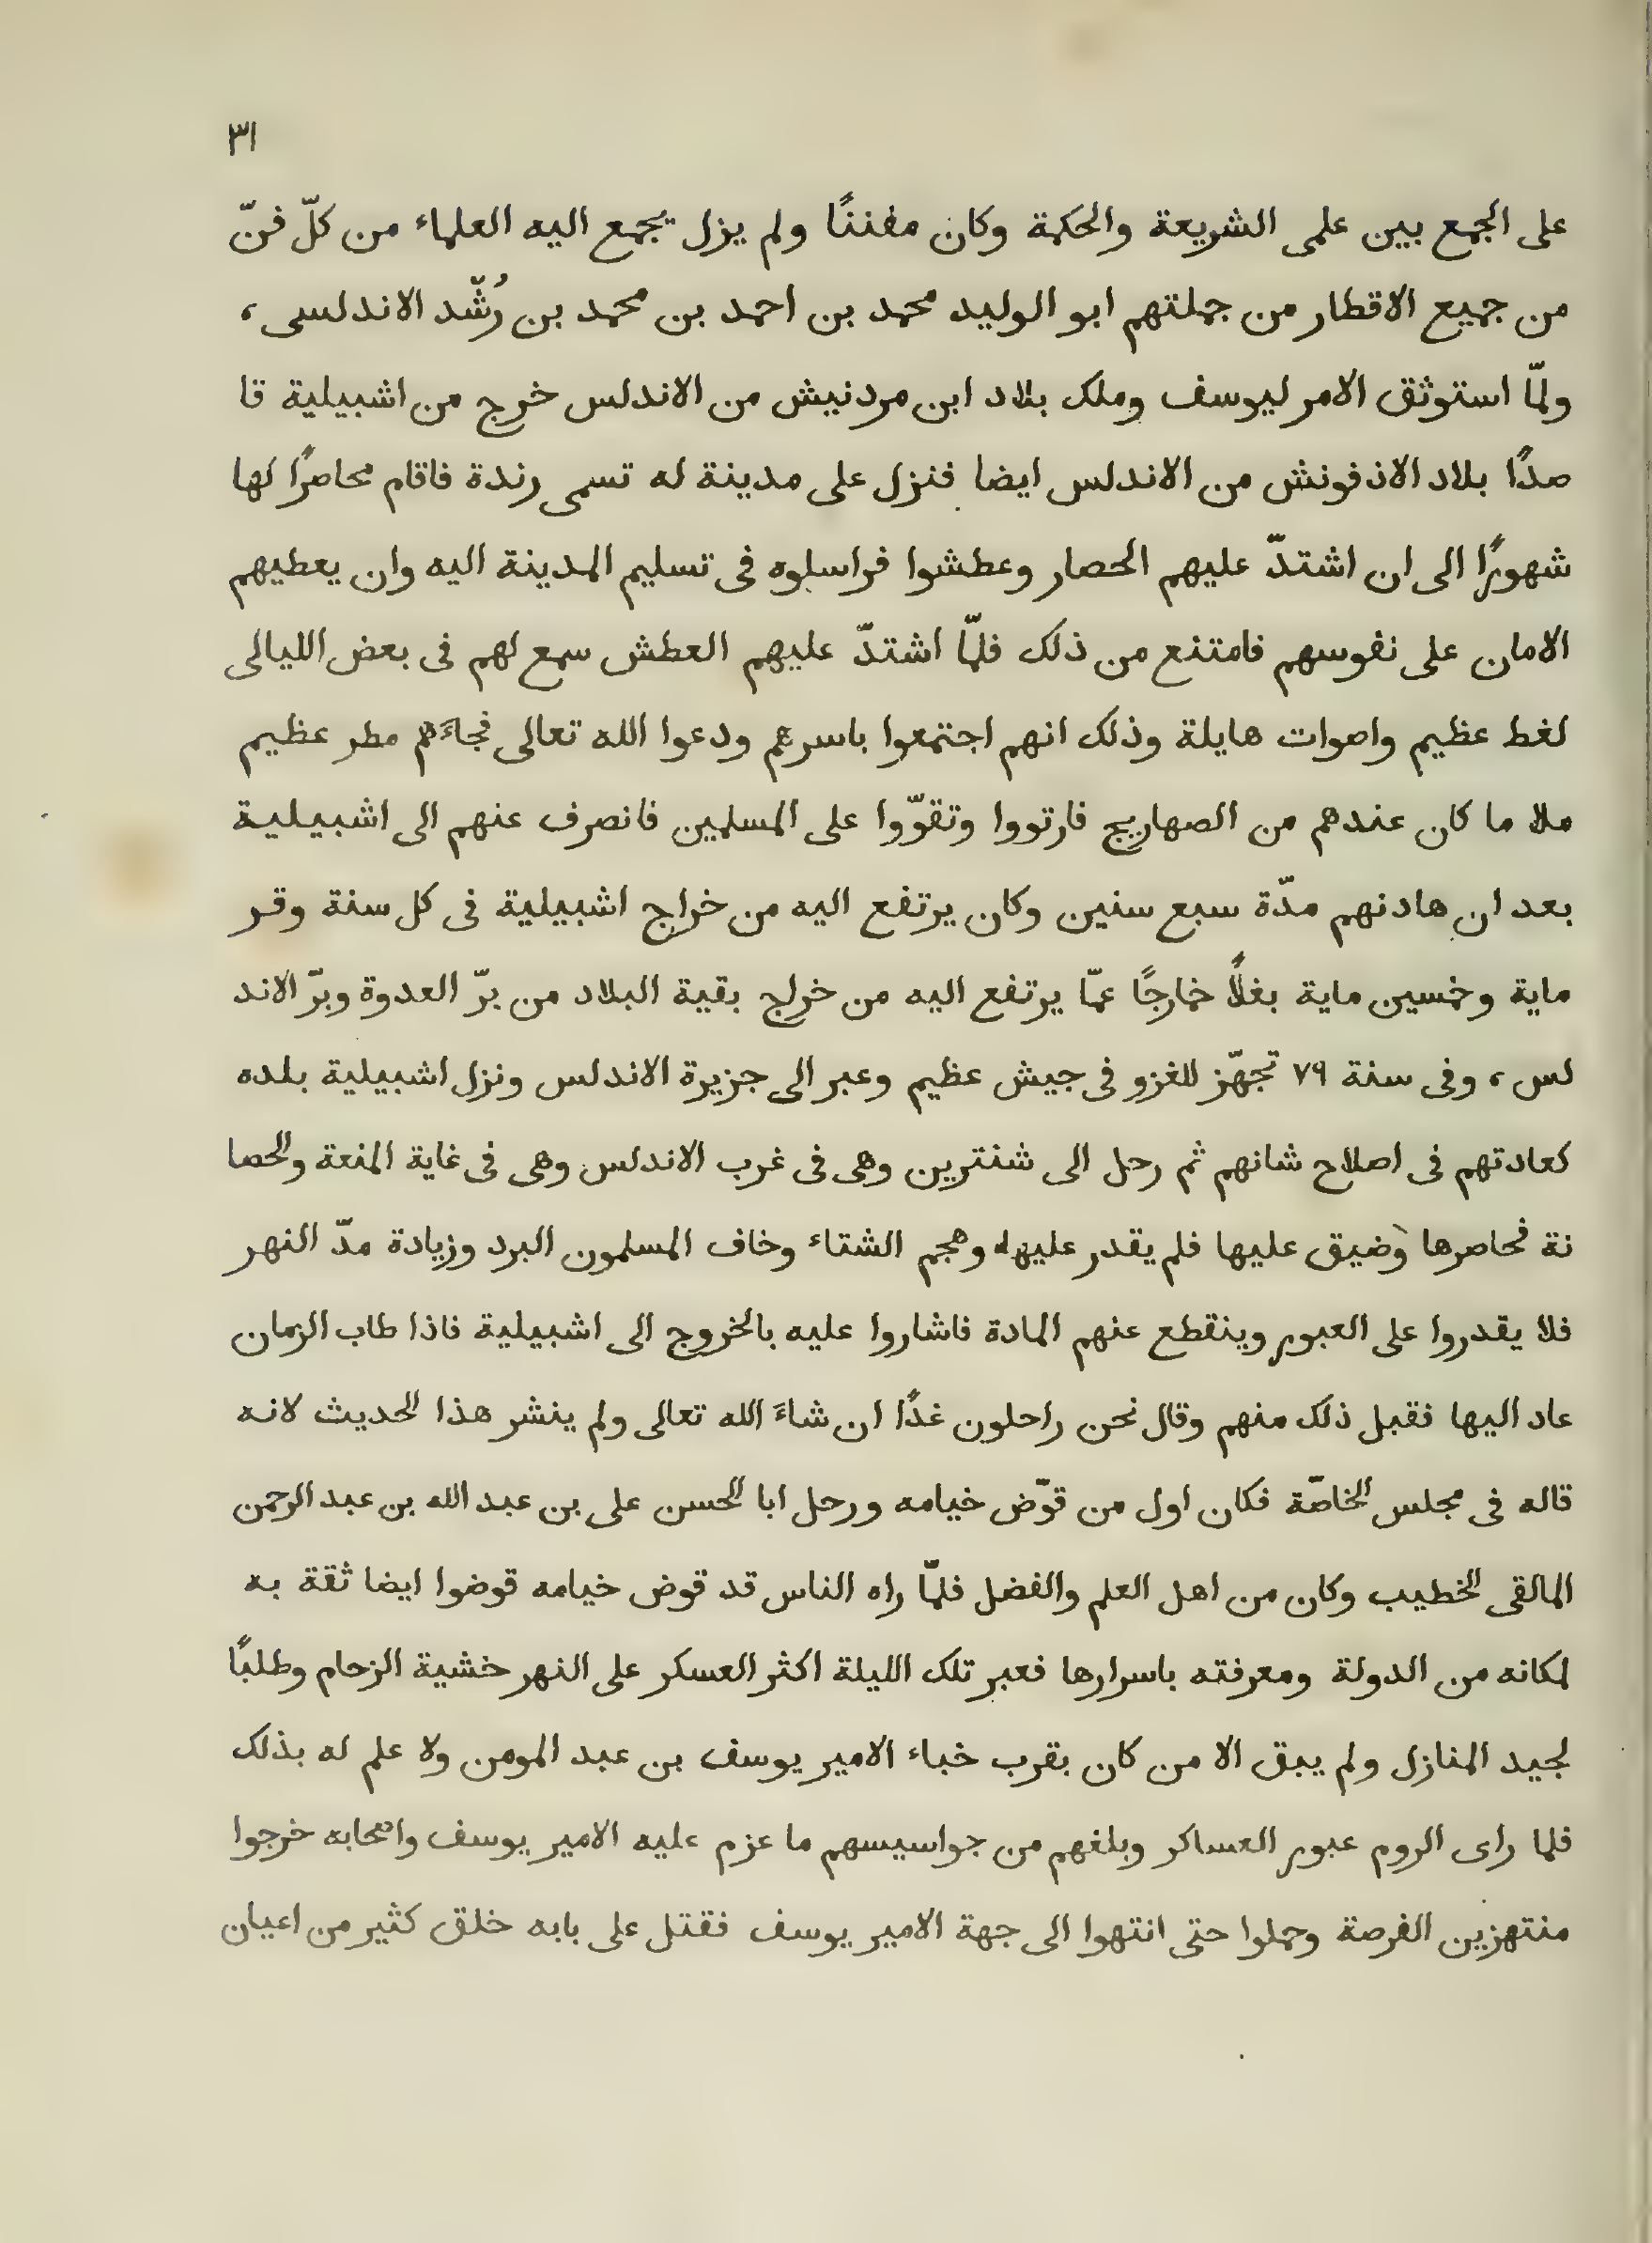 ٣١
على الجمع بين علمى الشريعة والحكمة وكان مفننًا ولم يزل يجمع اليه العلماء من كلّ فنّ
من جميع الاقطار من جملتهم ابو الوليد محمد بن احمد بن محمد بن رُشّد الاندلسى ،
ولمّا استوثق الامر ليوسف وملك بلاد ابن مردنيش من الاندلس خرج من اشبيلية قا
صدًا بلاد الاذفونش من الاندلس ايضا فنزل على مدينة له تسمى رندة فاقام محاصرًا لها
شهورًا الى ان اشتدّ عليهم الحصار وعطشوا فراسلوه فى تسليم المدينة اليه وان يعطيهم
الامان على نفوسهم فامتنع من ذلك فلمّا اشتدّ عليهم العطش سمع لهم فى بعض الليالى
لغط عظيم واصوات هايلة وذلك انهم اجتمعوا باسرهم ودعوا الله تعالى فجاءَهم مطر عظيم
ملا ما كان عندهم من الصهاريج فارتووا وتقوّوا على المسلمين فانصرف عنهم الى اشبيلية
بعد ان هادنهم مدّة سبع سنين وكان يرتفع اليه من خراج اشبيلية فى كل سنة وقر
ماية وخمسين ماية بغلًا خارجًا عمّا يرتفع اليه من خراج بقية البلاد من برّ العدوة وبرّ الاند
لس ، وفى سنة ٧٩ تجهّز للغزو فى جيش عظيم وعبر الى جزيرة الاندلس ونزل اشبيلية بلده
كعادتهم فى اصلاح شانهم ثم رحل الى شنترين وهى فى غرب الاندلس وهى فى غاية المنعة والحصا
نة فحاصرها وضيق عليها فلم يقدر عليها وهجم الشتاء وخاف المسلمون البرد وزيادة مدّ النهر
فلا يقدروا على العبور وينقطع عنهم المادة فاشاروا عليه بالخروج الى اشبيلية فاذا طاب الزمان
عاد اليها فقبل ذلك منهم وقال نحن راحلون غدًا ان شاءَ الله تعالى ولم ينشر هذا الحديث لانه
قاله فى مجلس الخاصّة فكان اول من قوّض خيامه ورحل ابا الحسن على بن عبد الله بن عبد الرحمن
المالقى الخطيب وكان من اهل العلم والفضل فلمّا راه الناس قد قوض خيامه قوضوا ايضا ثقة به
لمكانه من الدولة ومعرفته باسرارها فعبر تلك الليلة اكثر العسكر على النهر خشية الزحام وطلبًا
لجيد المنازل ولم يبق الا من كان بقرب خباء الامير يوسف بن عبد المومن ولا علم له بذلك
فلما راى الروم عبور العساكر وبلغهم من جواسيسهم ما عزم عليه الامير يوسف واصحابه خرجوا
منتهزين الفرصة وحملوا حتى انتهوا الى جهة الامير يوسف فقتل على بابه خلق كثير من اعيان